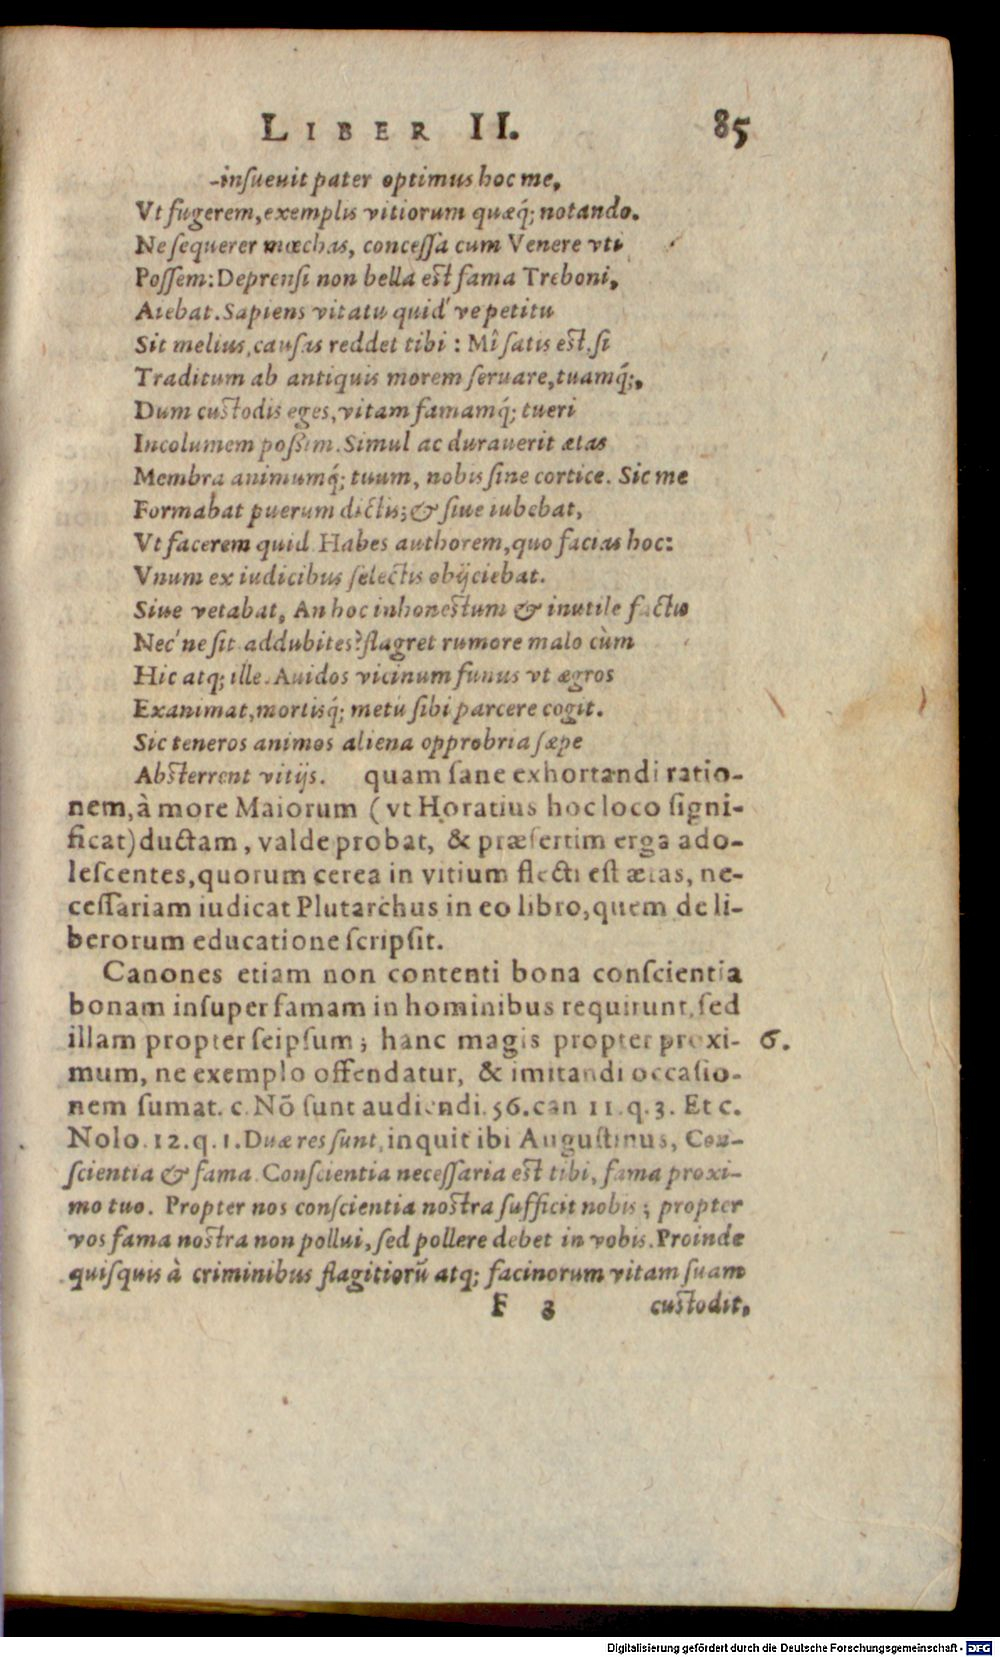 LIBER II. 85
-inſueuit pater optimus hoc me,
Vt fugerem, exemplis vitiorum quæq́; notando.
Ne ſequerer mœchas, conceſſa cum Venere vti
Poſſem: Deprenſi non bella eſt fama Treboni,
Aiebat. Sapiens vitatu quid' ve petitu
Sit melius, cauſas reddet tibi : Mî ſatis eſt. ſi
Traditum ab antiquis morem ſeruare, tuamq́;,
Dum cuſtodis eges, vitam famamq́; tueri
Incolumem poßim. Simul ac durauerit ætas
Membra animumq́; tuum, nobis ſine cortice. Sic me
Formabat puerum dictis; & ſiue iubebat,
Vt facerem quid Habes authorem, quo facias hoc:
Vnum ex iudicibus ſelectis obijciebat.
Siue vetabat, An hoc inhoneſtum & inutile factu
Nec' ne ſit addubites? flagret rumore malo cùm
Hic atq; ille. Auidos vicinum funus vt ægros
Exanimat, mortisq́; metu ſibi parcere cogit.
Sic teneros animos aliena opprobria ſæpe
Abſterrent vitijs. quam ſane exhortandi ratio-
nem, à more Maiorum (vt Horatius hoc loco ſigni-
ficat) ductam, valde probat, & præſertim erga ado-
leſcentes, quorum cerea in vitium flecti eſt ætas, ne-
ceſſariam iudicat Plutarchus in eo libro, quem de li-
berorum educatione ſcripſit.
Canones etiam non contenti bona conſcientia
bonam inſuper famam in hominibus requirunt, ſed
illam propter ſeipſum; hanc magis propter proxi- 6.
mum, ne exemplo offendatur, & imitandi occaſio-
nem ſumat. c. Nō ſunt audiendi. 56. can 11. q. 3. Et c.
Nolo. 12. q. 1. Duæ res ſunt, inquit ibi Auguſtinus, Con-
ſcientia & fama. Conſcientia neceſſaria eſt tibi, fama proxi-
mo tuo. Propter nos conſcientia noſtra ſufficit nobis; propter
vos fama noſtra non pollui, ſed pollere debet in vobis. Proinde
quiſquis à criminibus flagitiorū atq; facinorum vitam ſuam
F 3 cuſtodit,
Digitalisierung gefördert durch die Deutsche Forschungsgemeinschaft - DFG